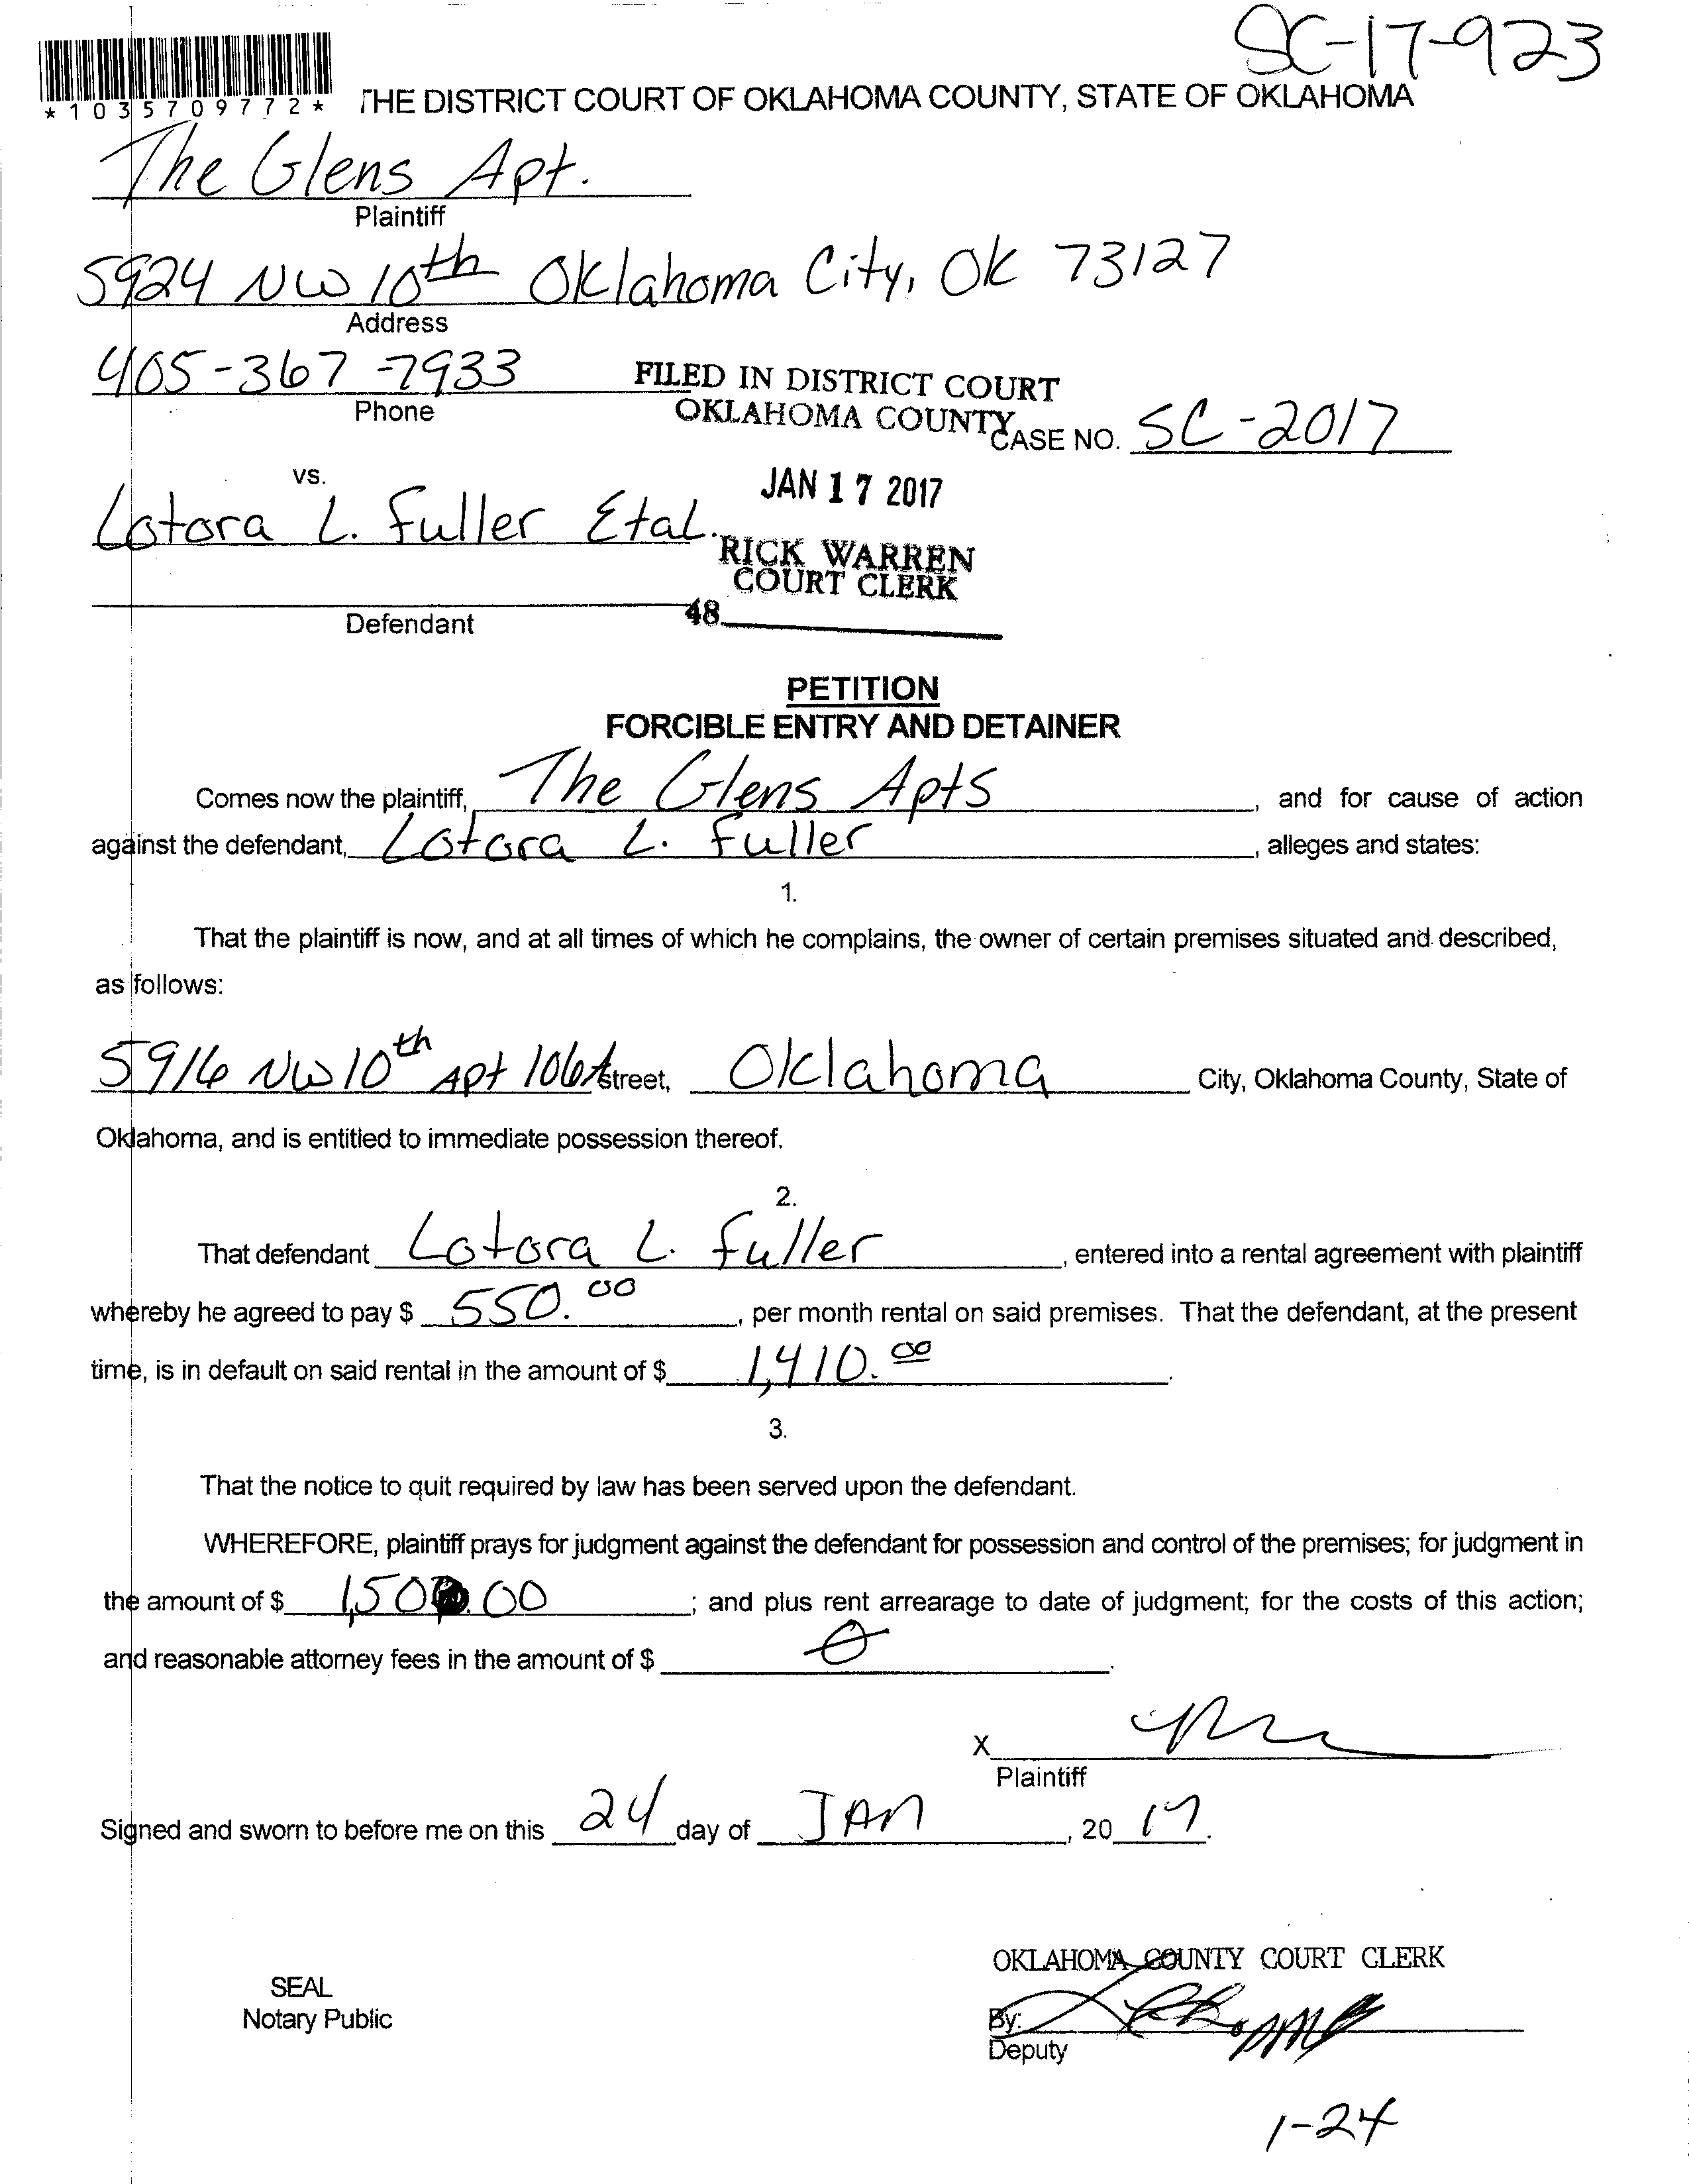 SC-17-923
*1035709772*
THE DISTRICT COURT OF OKLAHOMA COUNTY, STATE OF OKLAHOMA
The Glens Apt.
Plaintiff
5924 NW 10th Oklahoma City, OK 73127
Address
405-367-7933
Phone
FILED IN DISTRICT COURT
OKLAHOMA COUNTY
CASE NO. SC-2017
JAN 17 2017
vs.
Lotora L. Fuller Etal.
RICK WARREN
COURT CLERK
48
Defendant
PETITION
FORCIBLE ENTRY AND DETAINER
Comes now the plaintiff, The Glens Apts, and for cause of action
against the defendant, Lotora L. Fuller, alleges and states:
1.
That the plaintiff is now, and at all times of which he complains, the owner of certain premises situated and described,
as follows:
5916 NW 10th Apt 106A street, Oklahoma City, Oklahoma County, State of
Oklahoma, and is entitled to immediate possession thereof.
2.
That defendant Lotora L. Fuller, entered into a rental agreement with plaintiff
whereby he agreed to pay $ 550.00, per month rental on said premises. That the defendant, at the present
time, is in default on said rental in the amount of $ 1,410.00.
3.
That the notice to quit required by law has been served upon the defendant.
WHEREFORE, plaintiff prays for judgment against the defendant for possession and control of the premises; for judgment in
the amount of $ 1,500.00; and plus rent arrearage to date of judgment; for the costs of this action;
and reasonable attorney fees in the amount of $ 0.
X
Plaintiff
Signed and sworn to before me on this 24 day of JAN, 2017.
OKLAHOMA COUNTY COURT CLERK
SEAL
Notary Public
By:
Deputy
1-24